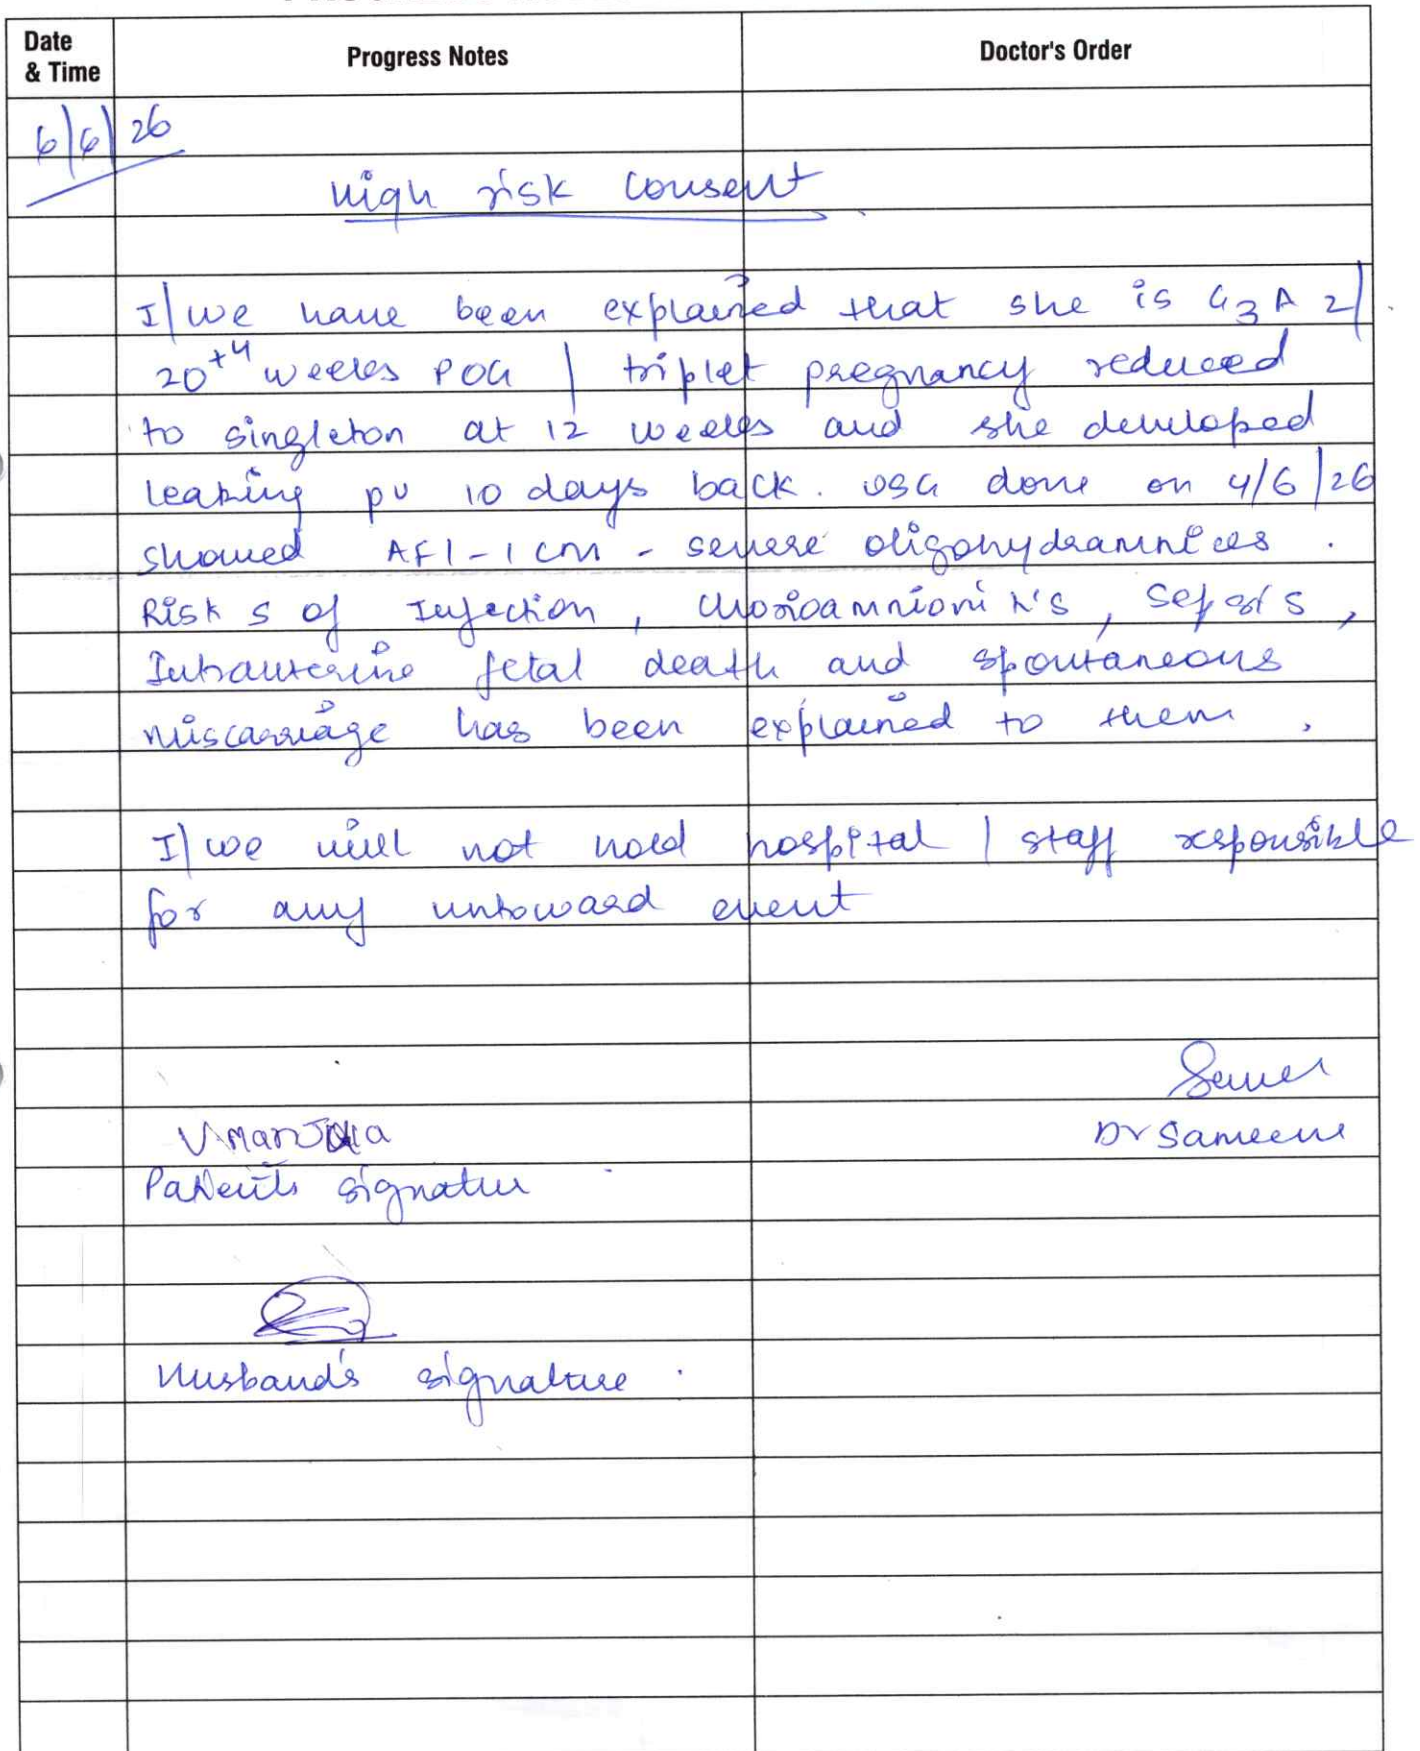 Date & Time
Progress Notes
Doctor's Order
6/6/26
High risk consent
I/we have been explained that she is G3A2/
20+4 weeks POG / triplet pregnancy reduced
to singleton at 12 weeks and she developed
leaking pv 10 days back. USG done on 4/6/26
showed AFI-1cm - severe oligohydramnios.
Risks of Infection, chorioamnionitis, sepsis,
Intrauterine fetal death and spontaneous
miscarriage has been explained to them.
I/we will not hold hospital / staff responsible
for any untoward event
Dr Sameena
Patient's signature
Husband's signature.